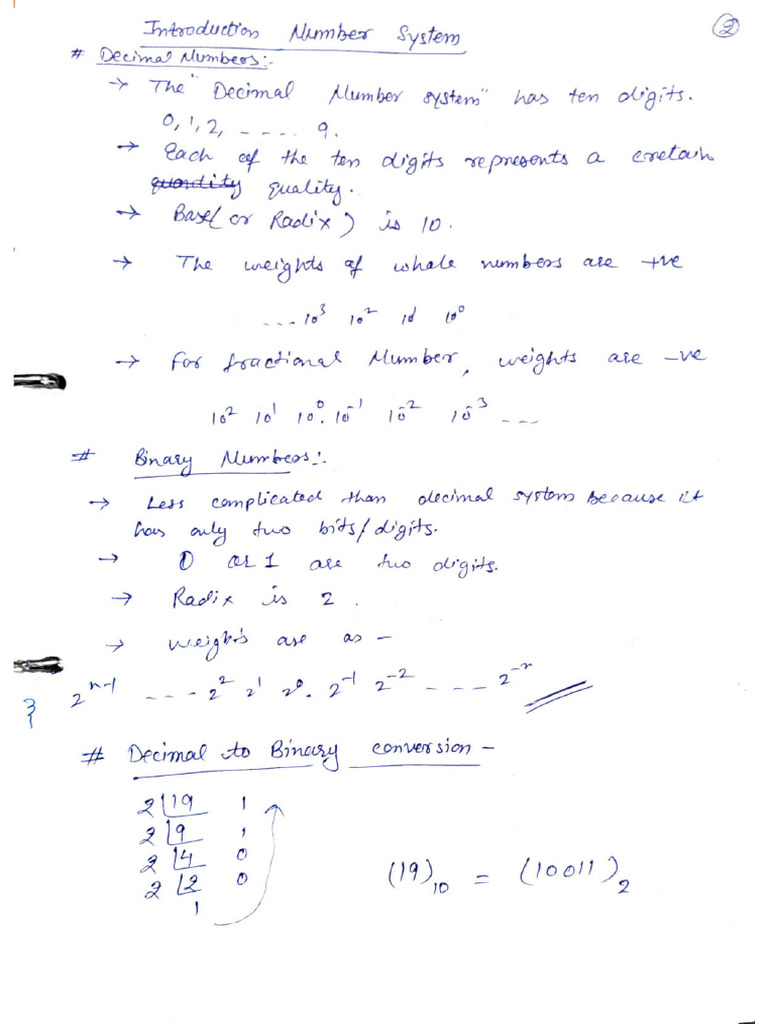 Introduction Number System
②
# Decimal Numbers:-
→ The "Decimal Number system" has ten digits.
0, 1, 2, ----- 9.
→ Each of the ten digits represents a cretain
quantity quality.
→ Base(or Radix) is 10.
→ The weights of whole numbers are +ve
---10³ 10² 10¹ 10⁰
→ For fractional Number, weights are -ve
10² 10¹ 10⁰. 10⁻¹ 10⁻² 10⁻³ ---
# Binary Numbers:-
→ Less complicated than decimal system because it
has only two bits/digits.
→ 0 or 1 are two digits.
→ Radix is 2.
→ weights are as -
2ⁿ⁻¹ ---- 2² 2¹ 2⁰. 2⁻¹ 2⁻² ---- 2⁻ⁿ
# Decimal to Binary conversion -
2 19 1
2 9 1
2 4 0
2 2 0
1
(19)₁₀ = (10011)₂